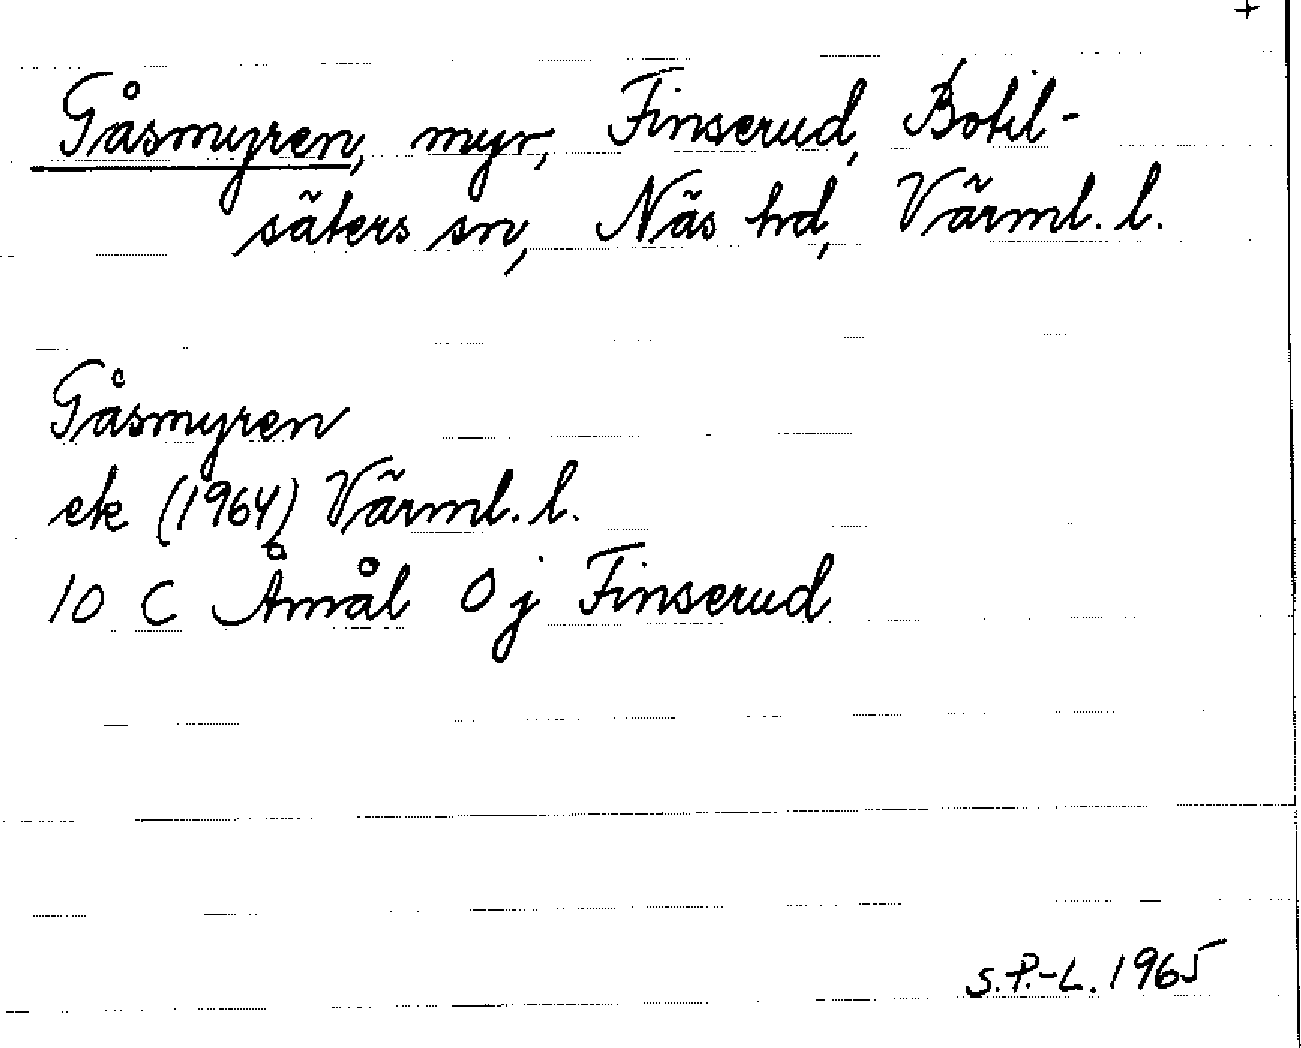 +
Gåsmyren, myr, Finserud, Botil-
säters sn, Näs hd, Värml. l.
Gåsmyren
ek (1964) Värml. l.
10 C Åmål 0 j Finserud
S.P.-L. 1965